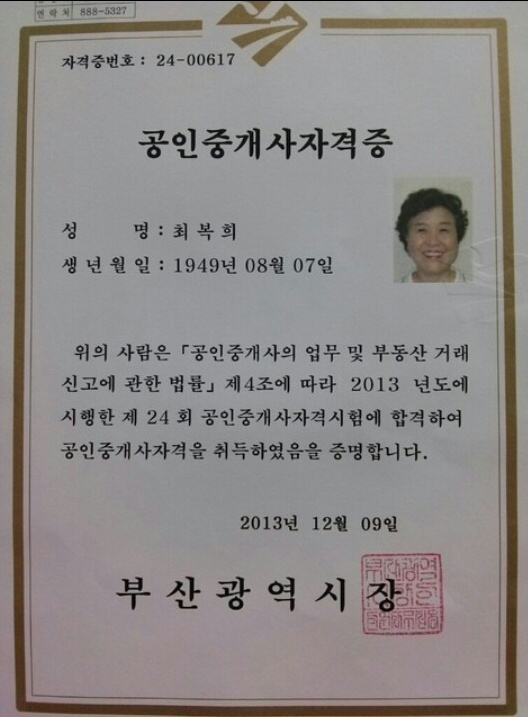 연 락 처 888-5327
자격증번호 : 24-00617
공인중개사자격증
성 명 : 최 복 희
생 년 월 일 : 1949년 08월 07일
위의 사람은 「공인중개사의 업무 및 부동산 거래
신고에 관한 법률」 제4조에 따라 2013 년도에
시행한 제 24 회 공인중개사자격시험에 합격하여
공인중개사자격을 취득하였음을 증명합니다.
2013년 12월 09일
부 산 광 역 시 장